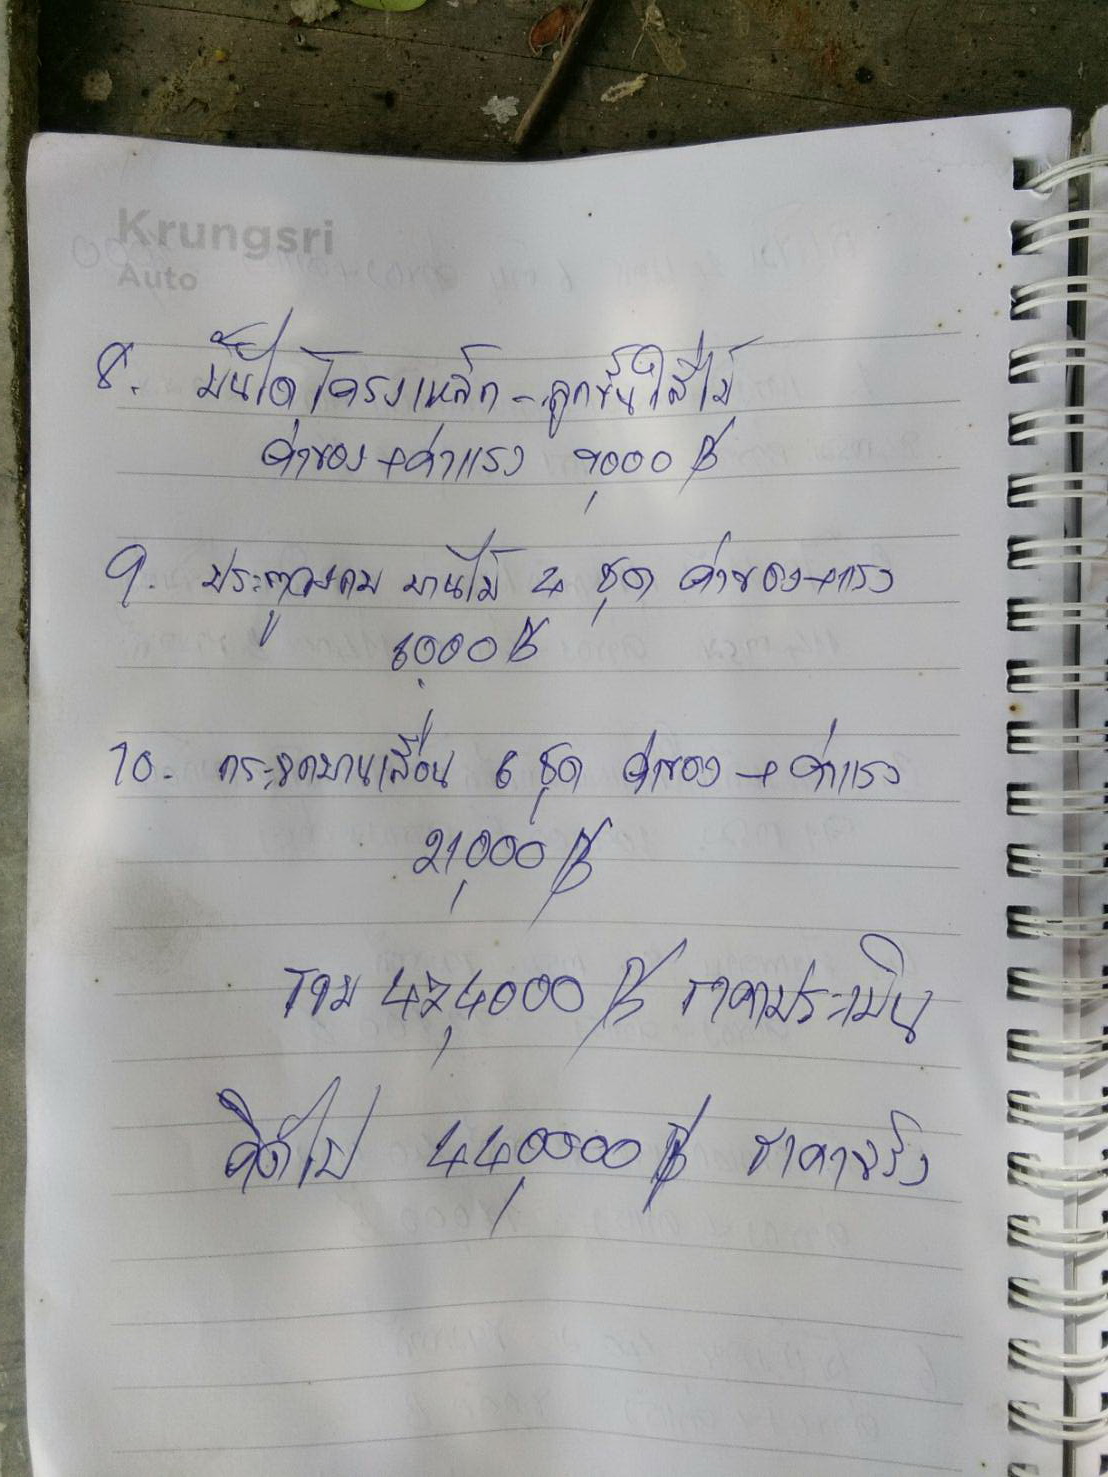 Krungsri
Auto
8. บันได โครงเหล็ก - ลูกขั้นใส่ไม้
ค่าของ + ค่าแรง 9,000 ฿
9. ประตูวงกบ บานไม้ 2 ชุด ค่าของ + แรง
6,000 ฿
10. กระจกบานเลื่อน 6 ชุด ค่าของ + ค่าแรง
21,000 ฿
รวม 474,000 ฿ ราคาประเมิน
คิดไป 440,000 ฿ ราคาจริง